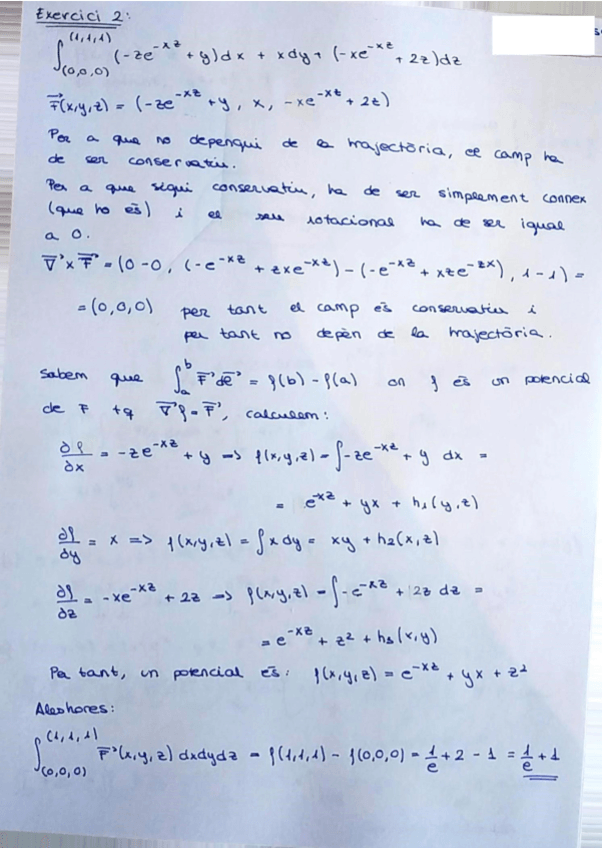 Exercici 2:
∫_(0,0,0)^(1,1,1) (-ze^-xz + y)dx + xdy + (-xe^-xz + 2z)dz
F⃗(x,y,z) = (-ze^-xz + y, x, -xe^-xz + 2z)
Per a que no depengui de la trajectòria, el camp ha
de ser conservatiu.
Per a que sigui conservatiu, ha de ser simplement connex
(que ho és) i el seu rotacional ha de ser igual
a 0.
∇⃗ x F⃗ = (0-0, (-e^-xz + zxe^-xz) - (-e^-xz + xze^-zx), 1-1) =
= (0,0,0) per tant el camp és conservatiu i
per tant no depèn de la trajectòria.
Sabem que ∫_a^b F⃗ dl⃗ = f(b) - f(a) on f és un potencial
de F tq ∇⃗f = F⃗, calculem:
∂f/∂x = -ze^-xz + y => f(x,y,z) = ∫-ze^-xz + y dx =
= e^-xz + yx + h1(y,z)
∂f/∂y = x => f(x,y,z) = ∫x dy = xy + h2(x,z)
∂f/∂z = -xe^-xz + 2z => f(x,y,z) = ∫-e^-xz + 2z dz =
= e^-xz + z² + h3(x,y)
Per tant, un potencial és: f(x,y,z) = e^-xz + yx + z²
Aleshores:
∫_(0,0,0)^(1,1,1) F⃗(x,y,z) dxdydz = f(1,1,1) - f(0,0,0) = 1/e + 2 - 1 = 1/e + 1